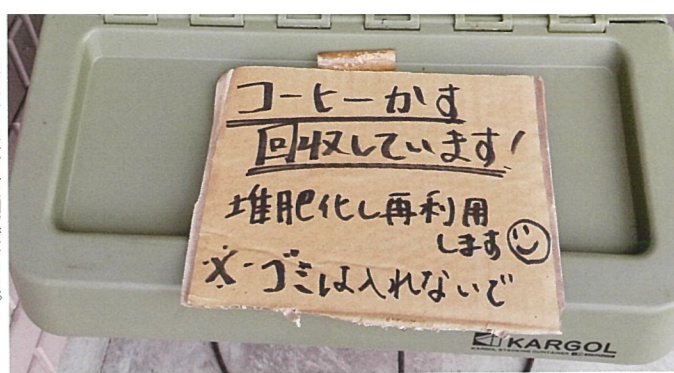 コーヒーかす
回収しています!
堆肥化し再利用
します
※ゴミは入れないで
KARGOL